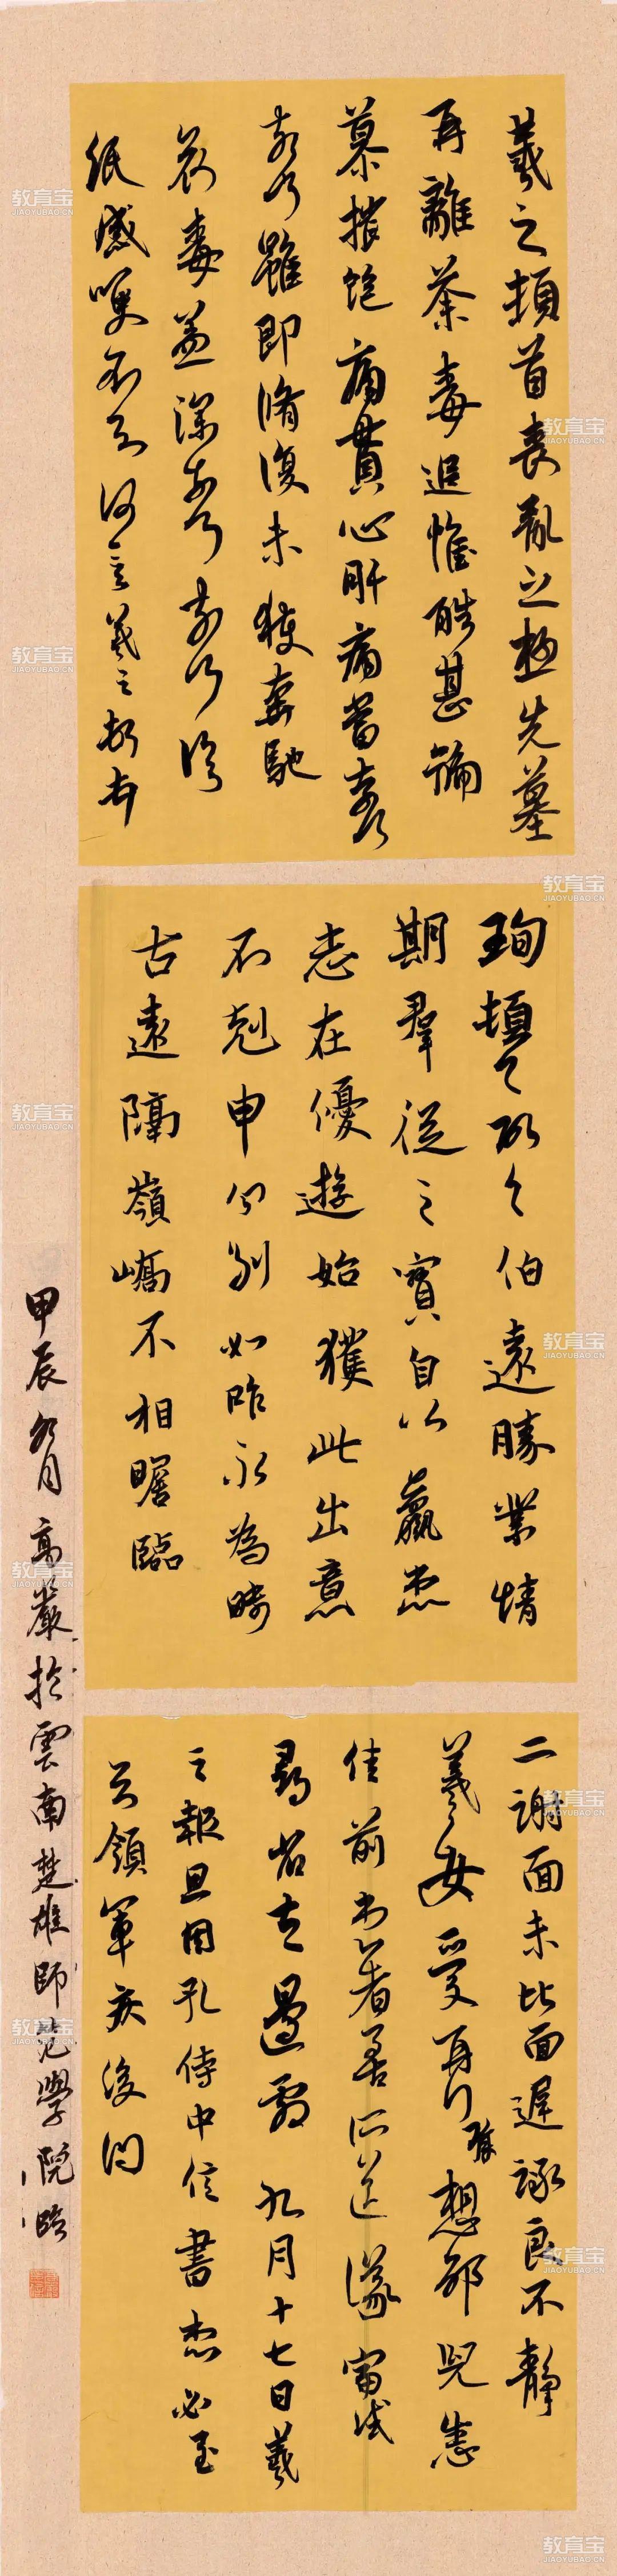 羲之頓首喪亂之極先墓
再離荼毒追惟酷甚號
慕摧絕痛貫心肝痛當奈何
奈何雖即脩復未獲奔馳
哀毒益深奈何奈何臨
紙感哽不知何言羲之頓首
珣頓首頓首伯遠勝業情
期羣從之寶自以羸患
志在優遊始獲此出意
不剋申分別如昨永為疇
古遠隔嶺嶠不相瞻臨
二謝面未比面遲詠良不靜
羲之女愛再拜想邰兒悉
佳前患者善所送議當試
尋省左邊劇九月十七日羲
之報且因孔侍中信書想必至
不知領軍疾後問
甲辰冬月高巖於雲南楚雄師範學院臨
教育宝
JIAOYUBAO.CN